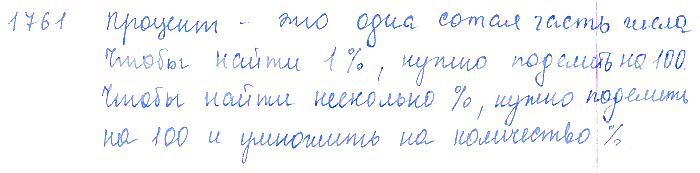 1761 Процент - это одна сотая часть числа
Чтобы найти 1%, нужно поделить на 100
Чтобы найти несколько %, нужно поделить
на 100 и умножить на количество %